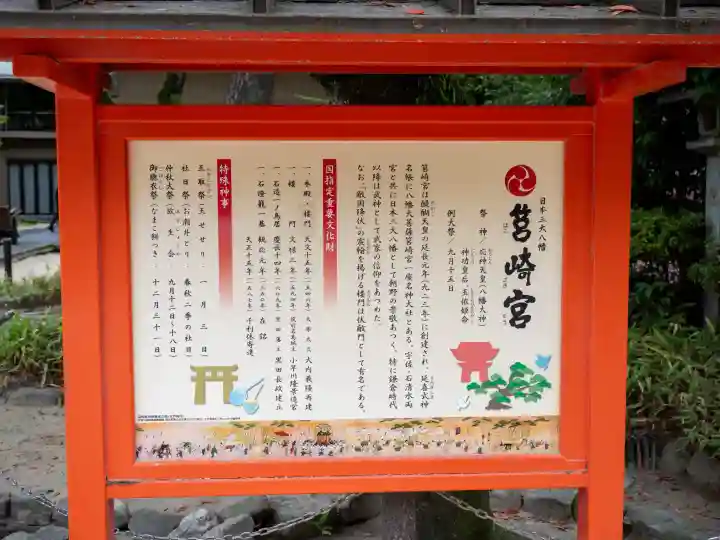 日本三大八幡
筥崎宮
祭神／応神天皇(八幡大神)
神功皇后・玉依姫命
例大祭／九月十五日
筥崎宮は醍醐天皇の延長元年(九二三年)に創建され、延喜式神
名帳に八幡大菩薩筥崎宮一座名神大社とある。宇佐・石清水両
宮と共に日本三大八幡として朝野の崇敬あつく、特に鎌倉時代
以降は武神として武家の信仰をあつめた。
なお「敵国降伏」の宸翰を掲げる楼門は伏敵門として有名である。
国指定重要文化財
一、本殿・拝殿 天文十五年(一五四六年)大内義隆再建
一、楼門 文禄三年(一五九四年)小早川隆景造営
一、石造一ノ鳥居 慶長十四年(一六〇九年)黒田藩主 黒田長政建立
一、石燈籠一基 観応元年(一三五〇年)在銘
天正十五年(一五八七年)千利休寄進
特殊神事
玉取祭(玉せせり) 一月三日
社日祭(お潮井とり) 春秋二季の社日
仲秋大祭(放生会) 九月十二日〜十八日
御胞衣祭(なまこ餅つき) 十二月三十一日